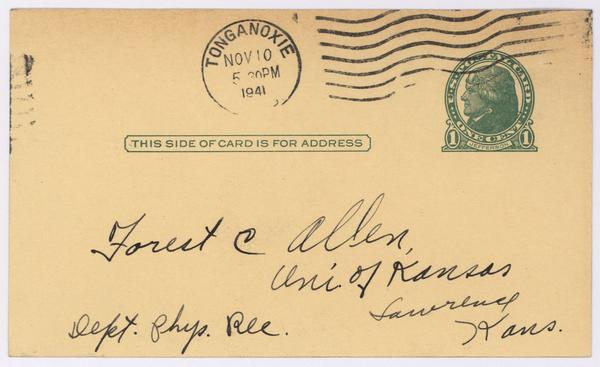 TONGANOXIE
NOV 10
5 30PM
1941
U.S. POSTAL CARD
ONE CENT
1 JEFFERSON 1
THIS SIDE OF CARD IS FOR ADDRESS
Forest C Allen,
Uni. of Kansas
Lawrence
Kans.
Dept. Phys. Rec.